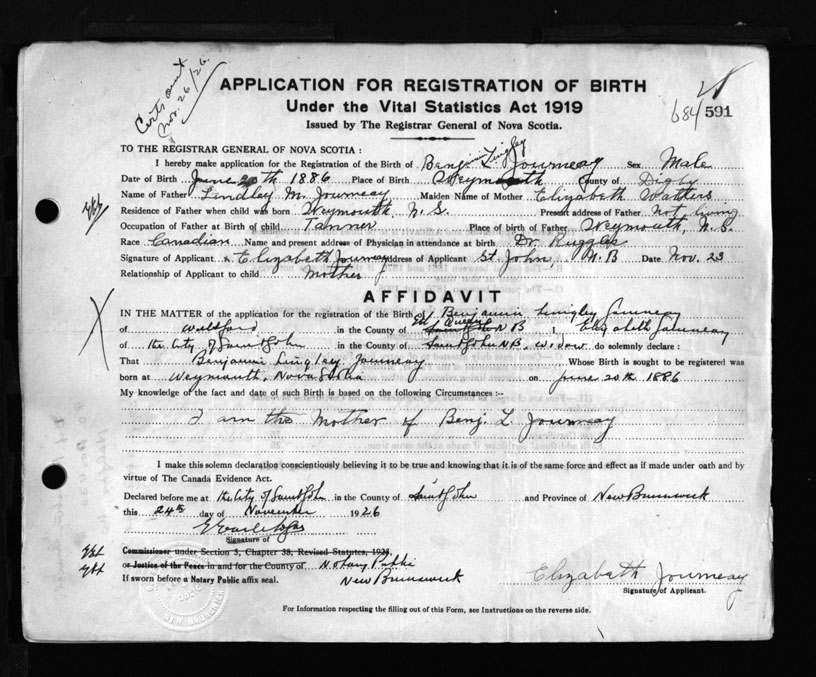 Certs sent
Nov. 26/26.
APPLICATION FOR REGISTRATION OF BIRTH
Under the Vital Statistics Act 1919
Issued by The Registrar General of Nova Scotia.
684 591
TO THE REGISTRAR GENERAL OF NOVA SCOTIA :
I hereby make application for the Registration of the Birth of Benjamin Lingley Journeay Sex Male
Date of Birth June 20th 1886 Place of Birth Weymouth County of Digby
Name of Father Lindley M. Journeay Maiden Name of Mother Elizabeth Watters
Residence of Father when child was born Weymouth N.S. Present address of Father not living
Occupation of Father at Birth of child Tanner Place of birth of Father Weymouth, N.S.
Race Canadian Name and present address of Physician in attendance at birth Dr Ruggles
Signature of Applicant Elizabeth Journeay Address of Applicant St. John, N.B Date Nov. 23
Relationship of Applicant to child Mother
AFFIDAVIT
IN THE MATTER of the application for the registration of the Birth of Benjamin Lingley Journeay
of Welsford in the County of Queens Saint John N B I, Elizabeth Journeay
of the City of Saint John in the County of Saint John N.B. Widow do solemnly declare :
That Benjamin Lingley Journeay Whose Birth is sought to be registered was
born at Weymouth, Nova Scotia on June 20th 1886
My knowledge of the fact and date of such Birth is based on the following Circumstances :--
I am the Mother of Benj. L. Journeay
I make this solemn declaration conscientiously believing it to be true and knowing that it is of the same force and effect as if made under oath and by
virtue of The Canada Evidence Act.
Declared before me at the City of Saint John in the County of Saint John and Province of New Brunswick
this 24th day of November 1926
Signature of
Commissioner under Section 3, Chapter 38, Revised Statutes, 1923,
or Justice of the Peace in and for the County of Notary Public
If sworn before a Notary Public affix seal. New Brunswick
Elizabeth Journeay
Signature of Applicant.
For Information respecting the filling out of this Form, see Instructions on the reverse side.